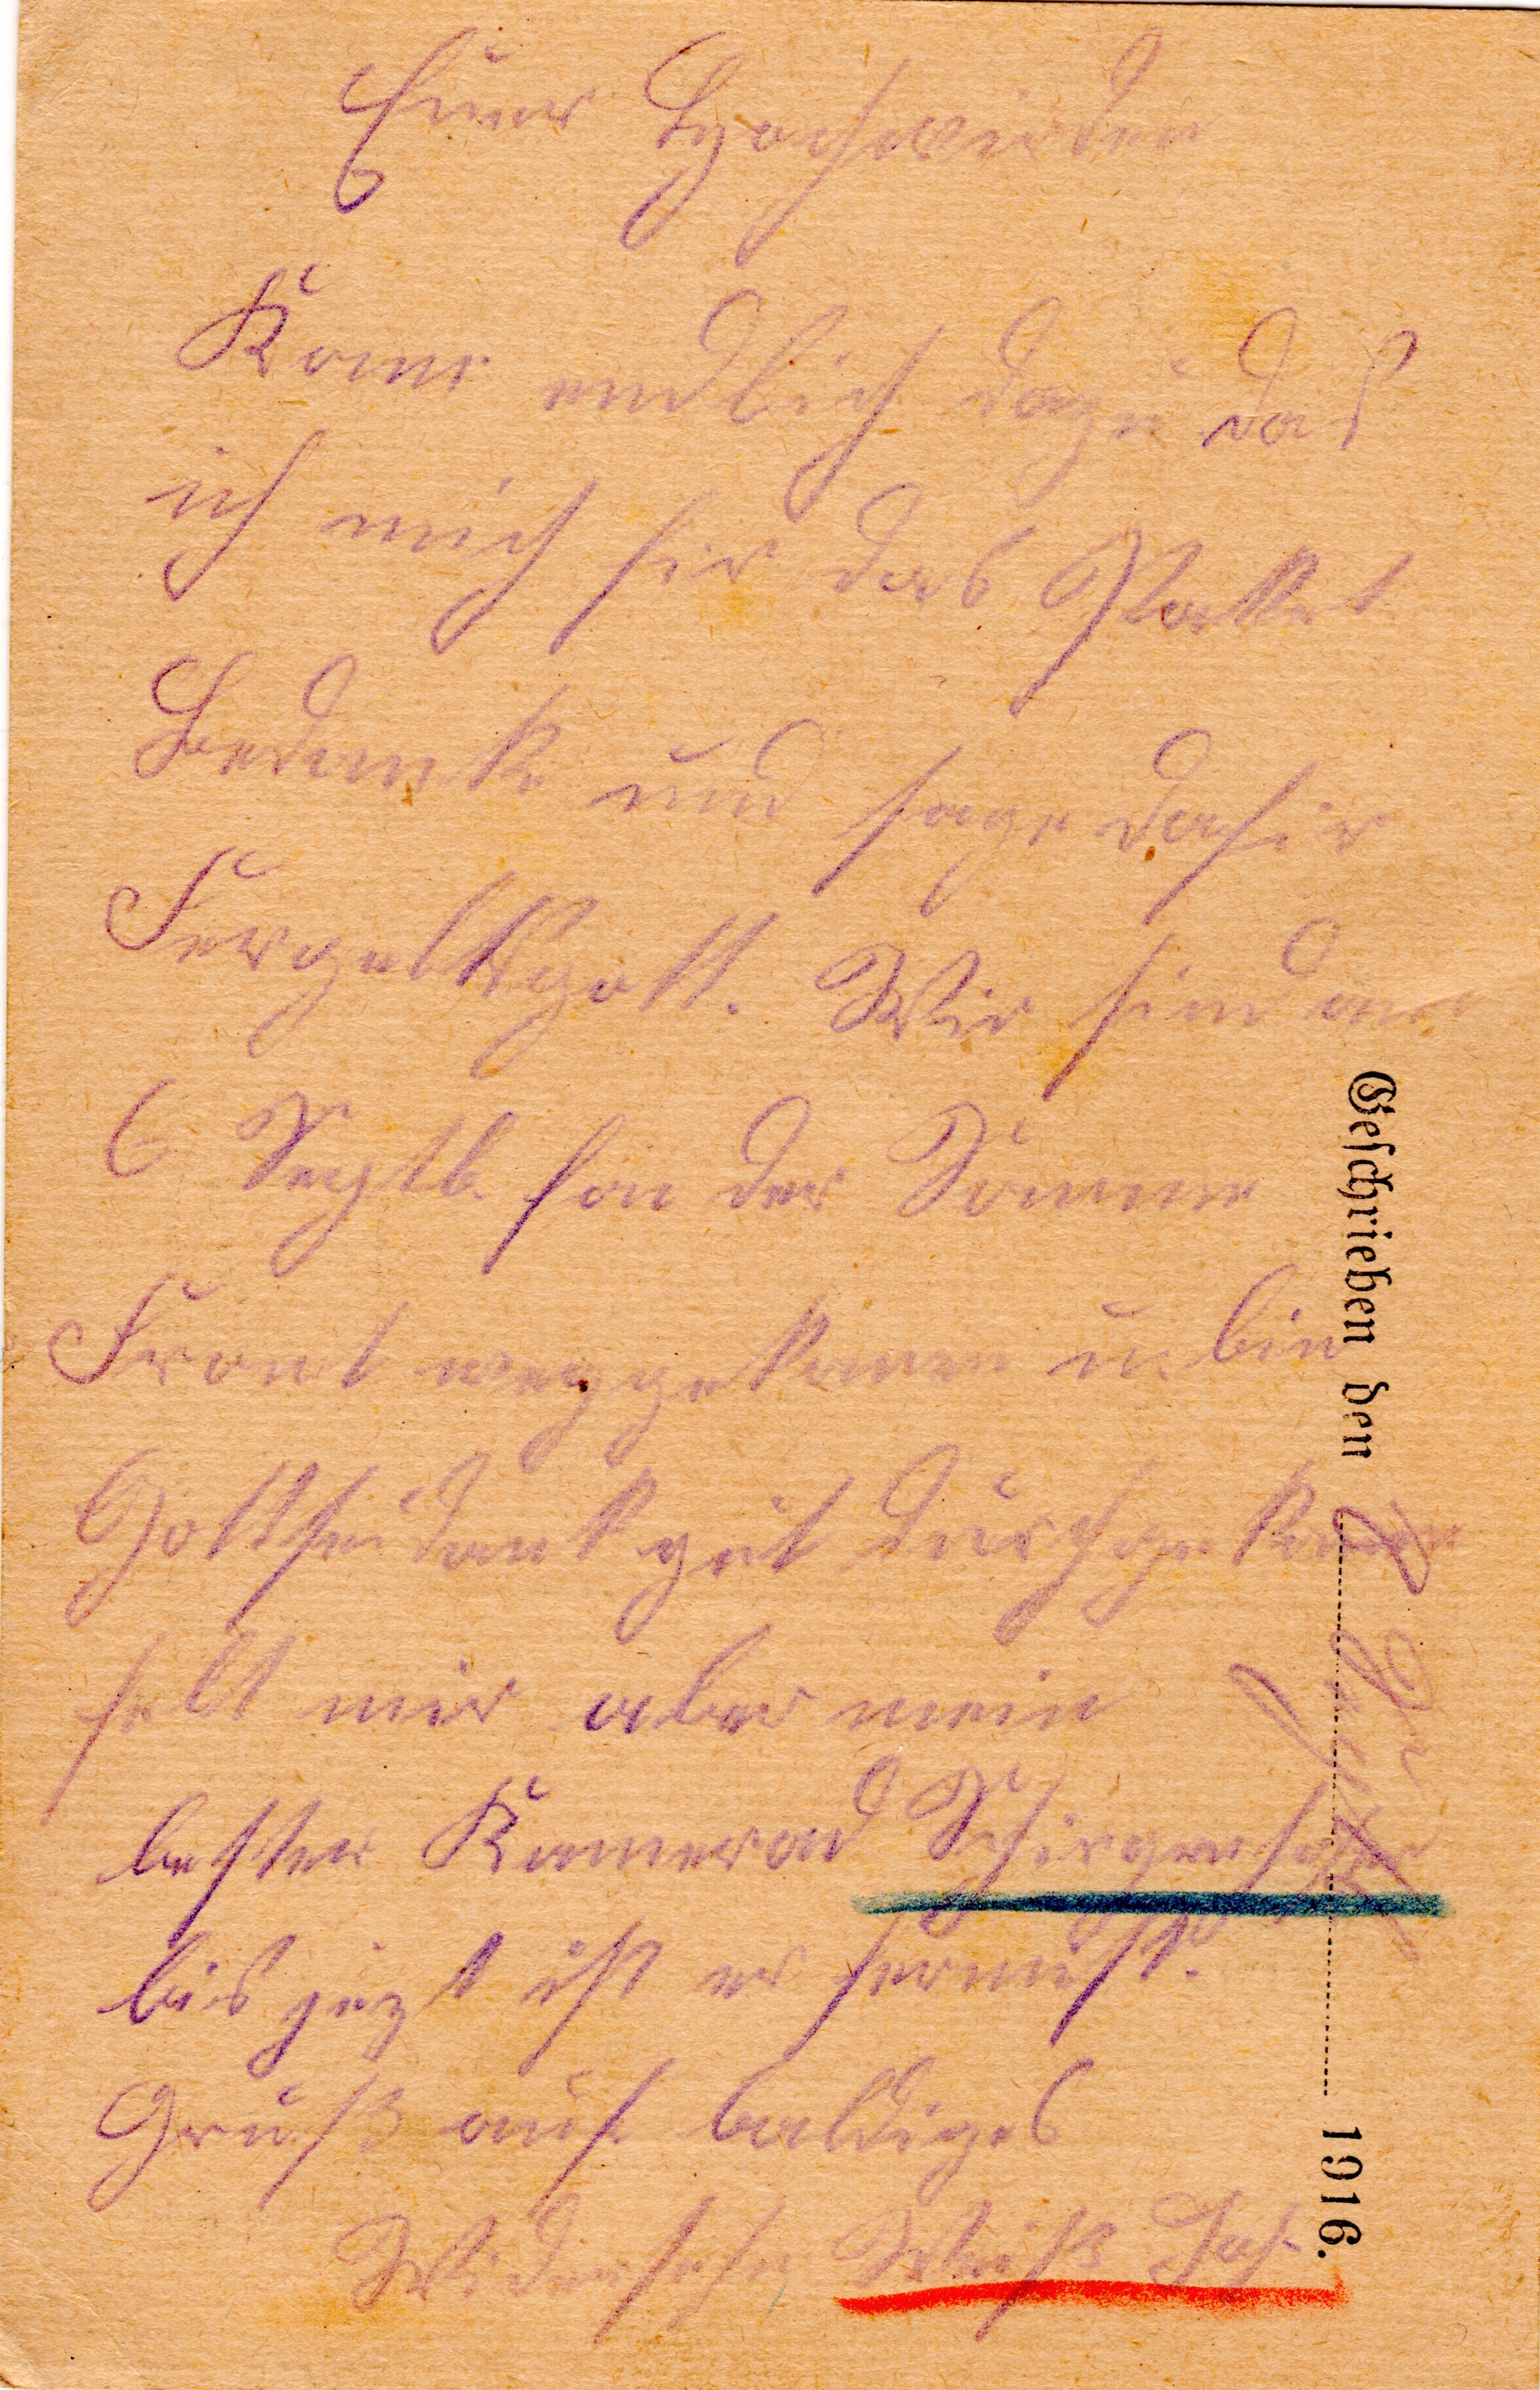 Euer Hochwirden
Kome endlich dazu das
ich mich fir das Packet
Bedanke und sage dafir
Fergeltsgott. Wir sind am
6 Septb. fon der Somme
Front weggekomen u. bin
Gottseidank gut durchgekomen
felt mir aber mein
bester Kamerad
bis jezt ist er fermist.
Gruß auf baldiges
Widersehn Weiß Joh.
Geschrieben den
1916.